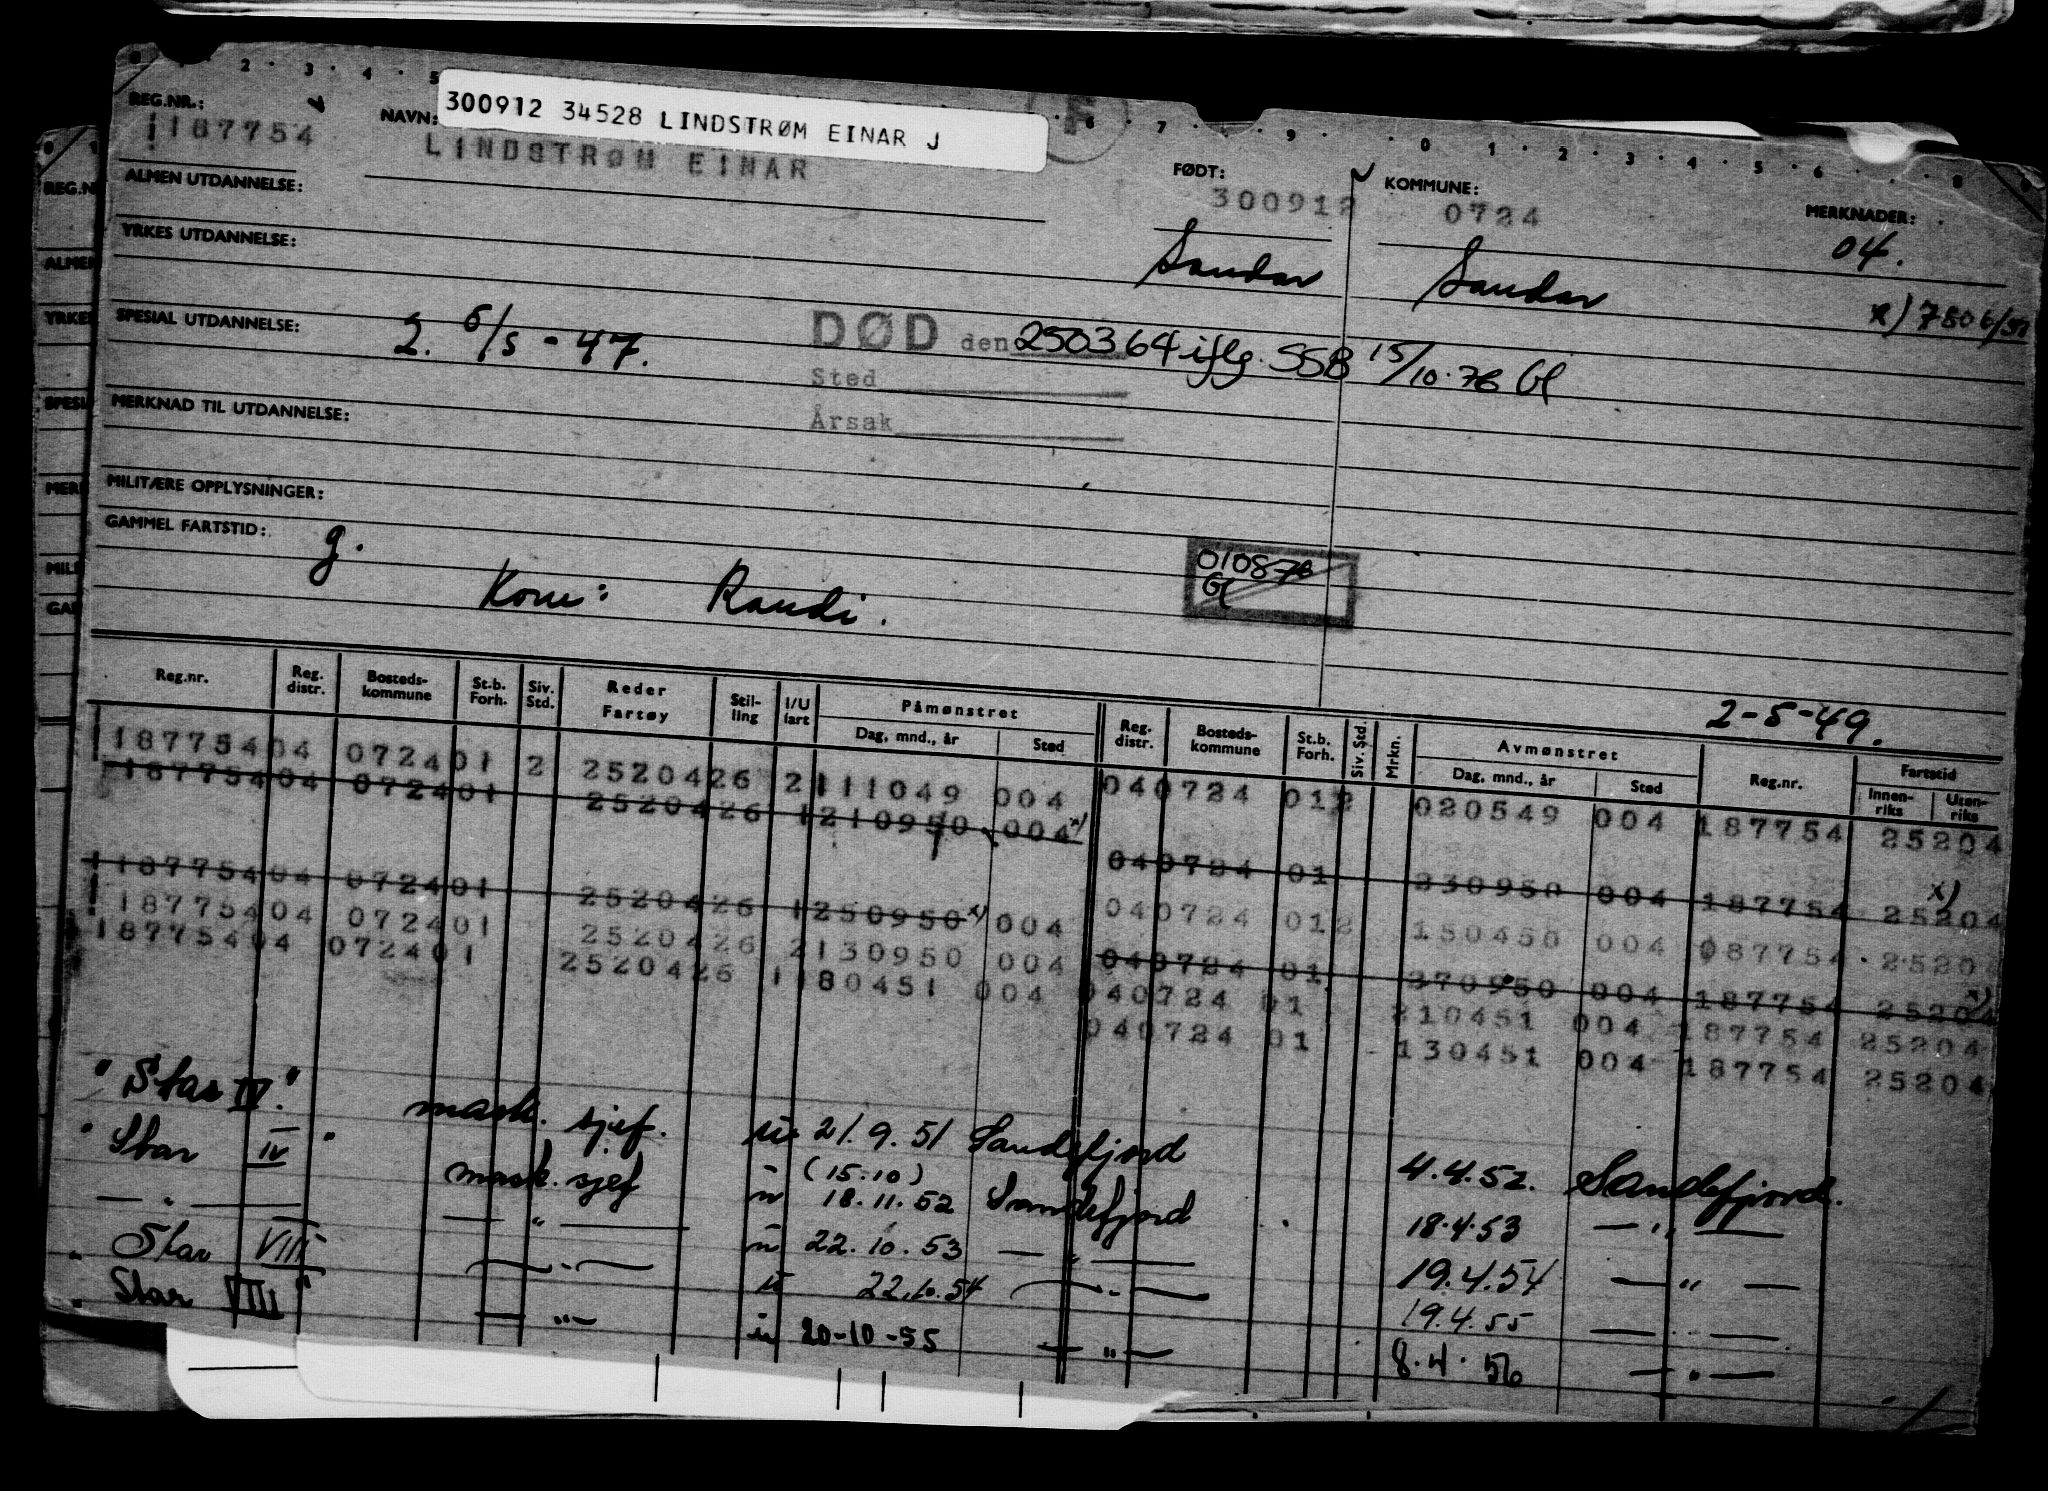 300912 34528 LINDSTRØM EINAR J
REG.NR.: 187754 NAVN: LINDSTRØM EINAR FØDT: 300912 KOMMUNE: 0724 MERKNADER:
04.
ALMEN UTDANNELSE:
Sandar Sandar
YRKES UTDANNELSE:
SPESIAL UTDANNELSE: 2. 6/5 - 47.
DØD den 250364 iflg. SSB 15/10.76 Gl
Sted
Årsak
MERKNAD TIL UTDANNELSE:
MILITÆRE OPPLYSNINGER:
GAMMEL FARTSTID: g.
010876
Gl
Kone: Randi.
2-5-49.
Reg.nr. Reg. distr. Bosteds-kommune St.b. Forh. Siv. Std. Reder Fartøy Stil-ling I/U fart Påmønstret Dag, mnd., år Sted Reg. distr. Bosteds-kommune St.b. Forh. Siv. Std. Mrkn. Avmønstret Dag, mnd., år Sted Reg.nr. Fartstid Innen-riks Uten-riks
187754 04 0724 01 2 25204 26 2 111049 004 04 0724 01 2 020549 004 187754 25204
187754 04 0724 01 25204 26 1 210950 004 x) 04 0724 01 230950 004 187754 25204 x)
187754 04 0724 01 25204 26 1 250950 x) 004 04 0724 01 2 150450 004 187754 25204
187754 04 0724 01 25204 26 2 130950 004 04 0724 01 270950 004 187754 25204 x)
187754 04 0724 01 25204 26 1 180451 004 04 0724 01 210451 004 187754 25204
04 0724 01 130451 004 187754 25204
"Star IV." mask. sjef. u 21.9.51 Sandefjord 4.4.52. Sandefjord.
" Star IV " mask. sjef u (15.10) 18.11.52 Sandefjord 18.4.53 — " —
— " — — " — u 22.10.53 — " — 19.4.54 — " —
" Star VIII " — " — u 22.10.54 — " — 19.4.55 — " —
" Star VIII " — " — u 20-10-55 — " — 8.4.56 — " —